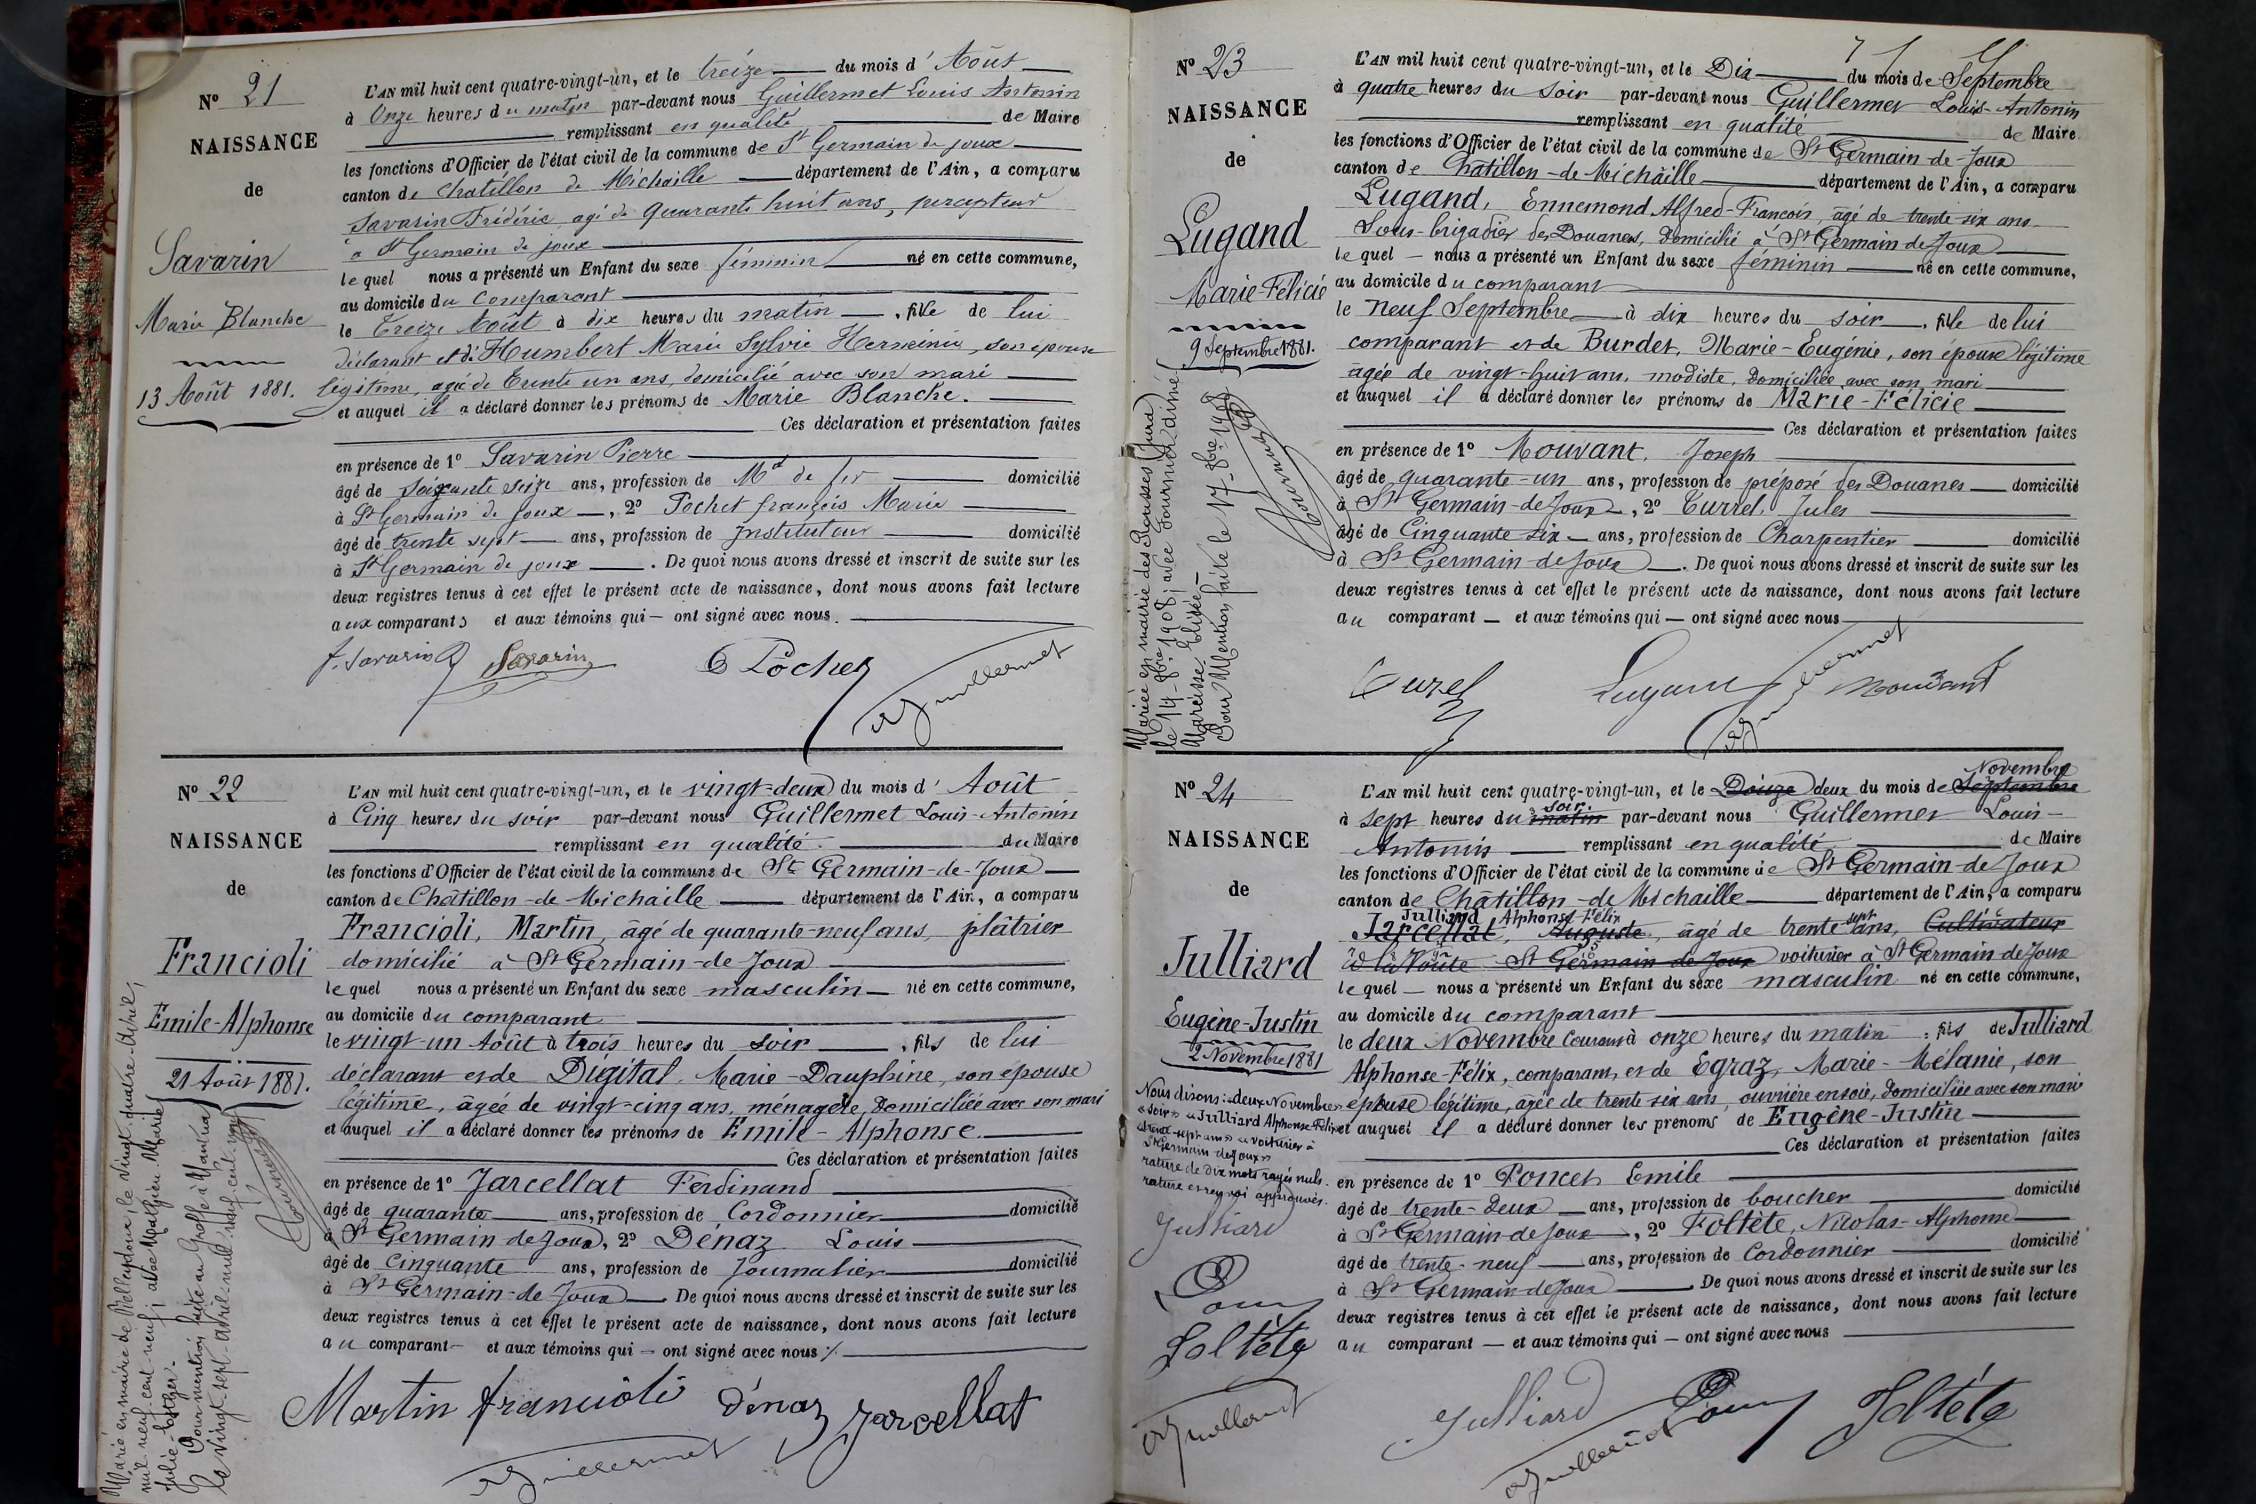 Nº 21
NAISSANCE
de
Savarin
Marie Blanche
13 Août 1881.
L'AN mil huit cent quatre-vingt-un, et le treize du mois d' Août
à Onze heures du matin par-devant nous Guillermet Louis Antonin
remplissant en qualité de Maire
les fonctions d'Officier de l'état civil de la commune de St Germain de joux
canton de Chatillon de Michaille département de l'Ain, a comparu
Savarin Frédéric, agé de Quarante huit ans, percepteur
a St Germain de joux
le quel nous a présenté un Enfant du sexe féminin né en cette commune,
au domicile du Comparant
le Treize Août à dix heures du matin , fille de lui
déclarant et de Humbert Marie Sylvie Herminie, son épouse
légitime, agée de Trente un ans, domicilié avec son mari
et auquel il a déclaré donner les prénoms de Marie Blanche.
Ces déclaration et présentation faites
en présence de 1º Savarin Pierre
âgé de soixante seize ans, profession de Md de fer domicilié
à St Germain de joux , 2º Pochet françois Marie
âgé de trente sept ans, profession de Instituteur domicilié
à St Germain de joux . De quoi nous avons dressé et inscrit de suite sur les
deux registres tenus à cet effet le présent acte de naissance, dont nous avons fait lecture
aux comparants et aux témoins qui — ont signé avec nous.
f. Savarin Savarin Pochet
Guillermet
Nº 22
NAISSANCE
de
Francioli
Emile-Alphonse
21 Août 1881.
Marié en mairie de Bellegdoux, le vingt-quatre-Avril,
mil neuf-cent-neuf; avec Malfieu Marie
Julie
Pour mention faite au Greffe à Nantua
le vingt-sept-avril-mil-neuf-cent-neuf
L'AN mil huit cent quatre-vingt-un, et le vingt-deux du mois d' Août
à Cinq heures du soir par-devant nous Guillermet Louis-Antonin
remplissant en qualité du Maire
les fonctions d'Officier de l'état civil de la commune de St Germain-de-Joux
canton de Châtillon-de-Michaille département de l'Ain, a comparu
Francioli, Martin, âgé de quarante-neuf ans, plâtrier
domicilié à St Germain-de-Joux
le quel nous a présenté un Enfant du sexe masculin né en cette commune,
au domicile du comparant
le vingt-un Août à trois heures du soir , fils de lui
déclarant et de Digital, Marie-Dauphine, son épouse
légitime, âgée de vingt-cinq ans, ménagère, domiciliée avec son mari
et auquel il a déclaré donner les prénoms de Emile-Alphonse.
Ces déclaration et présentation faites
en présence de 1º Jarcellat Ferdinand
âgé de quarante ans, profession de Cordonnier domicilié
à St Germain-de-Joux, 2º Dénaz Louis
âgé de Cinquante ans, profession de Journalier domicilié
à St Germain-de-Joux . De quoi nous avons dressé et inscrit de suite sur les
deux registres tenus à cet effet le présent acte de naissance, dont nous avons fait lecture
au comparant — et aux témoins qui — ont signé avec nous ./.
Martin francioli Dénaz Jarcellat
Guillermet
Nº 23
NAISSANCE
de
Lugand
Marie-Félicie
9 Septembre 1881.
Mariée en mairie des Rousses (Jura)
le 14-8bre-1908; avec Fournier Aimé
Narcisse Elisée
Pour Mention faite le 17-8bre-1908
L'AN mil huit cent quatre-vingt-un, et le Dix du mois de Septembre
à quatre heures du soir par-devant nous Guillermet Louis-Antonin
remplissant en qualité de Maire
les fonctions d'Officier de l'état civil de la commune de St Germain-de-Joux
canton de Châtillon-de-Michaille département de l'Ain, a comparu
Lugand, Ennemond Alfred-François, âgé de trente-six ans
Sous-brigadier des Douanes, domicilié à St Germain de Joux
le quel — nous a présenté un Enfant du sexe féminin né en cette commune,
au domicile du comparant
le neuf Septembre à dix heures du soir , fille de lui
comparant et de Burdet, Marie-Eugénie, son épouse légitime
âgée de vingt-huit ans, modiste, domiciliée avec son mari
et auquel il a déclaré donner les prénoms de Marie-Félicie
Ces déclaration et présentation faites
en présence de 1º Mouvant, Joseph
âgé de quarante-un ans, profession de préposé des Douanes domicilié
à St Germain-de-Joux , 2º Turrel, Jules
âgé de Cinquante-six ans, profession de Charpentier domicilié
à St Germain-de-Joux . De quoi nous avons dressé et inscrit de suite sur les
deux registres tenus à cet effet le présent acte de naissance, dont nous avons fait lecture
au comparant — et aux témoins qui — ont signé avec nous
Turel Lugand Guillermet Mouvant
Nº 24
NAISSANCE
de
Julliard
Eugène-Justin
2 Novembre 1881
Nous disons: «deux Novembre»
«soir» «Julliard Alphonse-Félix»
«trente-sept ans» «voiturier à
St Germain de Joux»
rature de dix mots rayés nuls.
rature et renvoi approuvés.
Julliard
Foltête
Guillermet
Novembre
L'AN mil huit cent quatre-vingt-un, et le Douze deux du mois de Septembre
soir.
à sept heures du matin par-devant nous Guillermet Louis-
Antonin remplissant en qualité de Maire
les fonctions d'Officier de l'état civil de la commune de St Germain-de-Joux
canton de Châtillon-de-Michaille département de l'Ain, a comparu
Julliard Alphonse Félix sept
Jarcellat, Auguste, âgé de trente ans, Cultivateur
à la Voute St Germain de Joux voiturier à St Germain de Joux
le quel — nous a présenté un Enfant du sexe masculin né en cette commune,
au domicile du comparant
le deux Novembre Courant à onze heures du matin , fils de Julliard
Alphonse-Félix, comparant, et de Egraz, Marie-Mélanie, son
épouse légitime, âgée de trente six ans, ouvrière en soie, domiciliée avec son mari
et auquel il a déclaré donner les prénoms de Eugène-Justin
Ces déclaration et présentation faites
en présence de 1º Poncet Emile
âgé de trente-deux ans, profession de boucher domicilié
à St Germain-de-Joux , 2º Foltête, Nicolas-Alphonse
âgé de trente-neuf ans, profession de Cordonnier domicilié
à St Germain-de-Joux De quoi nous avons dressé et inscrit de suite sur les
deux registres tenus à cet effet le présent acte de naissance, dont nous avons fait lecture
au comparant — et aux témoins qui — ont signé avec nous
Julliard Foltête
Guillermet